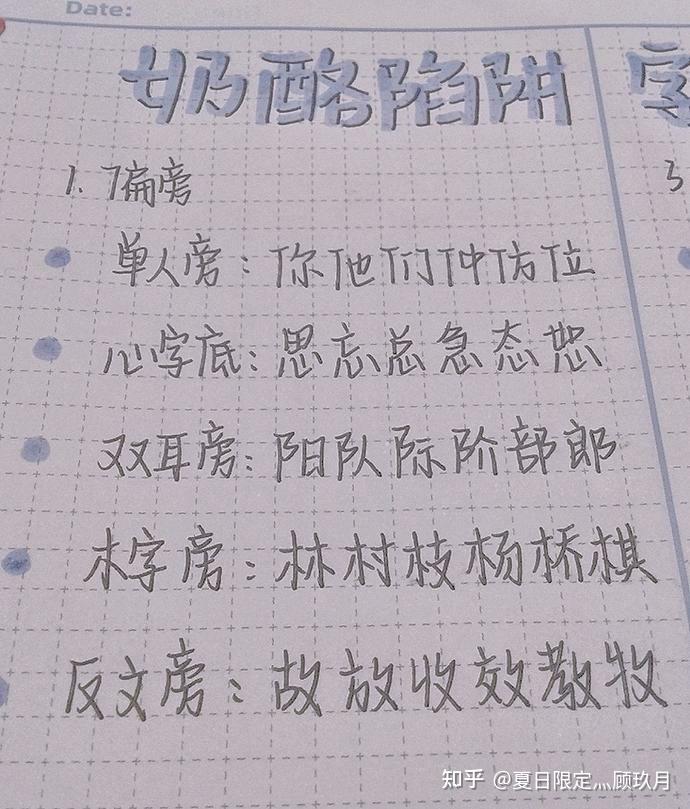 Date:
奶酪陷阱
字
1. 偏旁
3
单人旁：你他们仲仿位
心字底：思忘总急态恕
双耳旁：阳队际阶部郎
木字旁：林村枝杨桥棋
反文旁：故放收效教牧
知乎 @夏日限定灬顾玖月